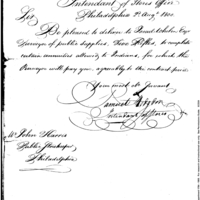 Intendant of Stores Office
Philadelphia 7th Augt 1800
Sir
Be pleased to deliver to Israel Whelen Esqr
Purveyor of public supplies, Two Rifles, to complete
certain annuities allowed to Indians, for which the
Purveyor will pay you, agreeably to the contract price.
Your most Ob Servant
Samuel Hodgdon
Intendant of Stores
Mr John Harris
Public Storekeeper
Philadelphia